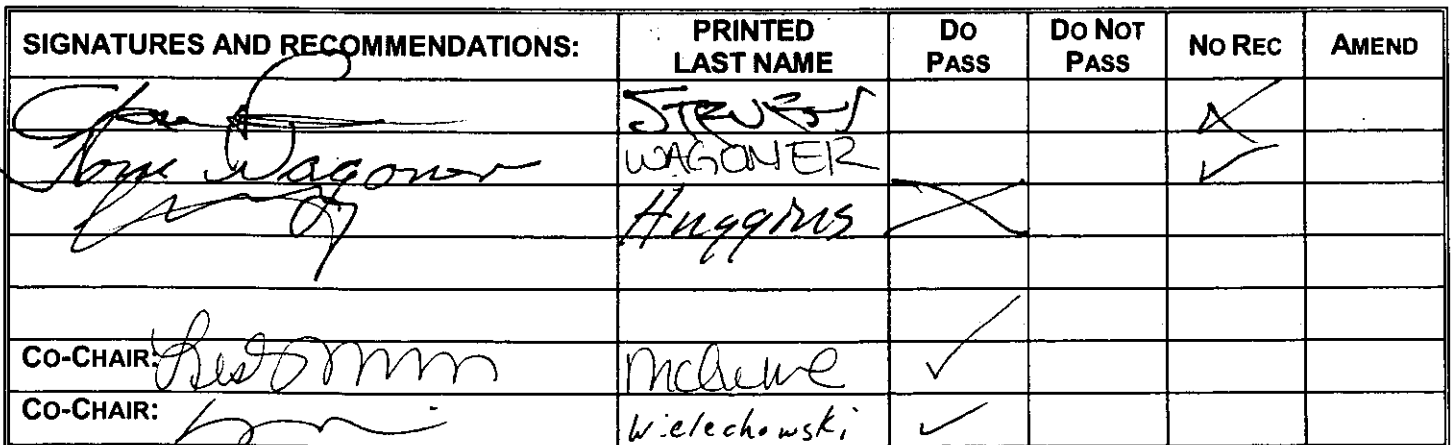 SIGNATURES AND RECOMMENDATIONS: PRINTED LAST NAME DO PASS DO NOT PASS NO REC AMEND
STEVENS
Tom Wagoner WAGONER
Huggins
CO-CHAIR: McGuire
CO-CHAIR: Wielechowski